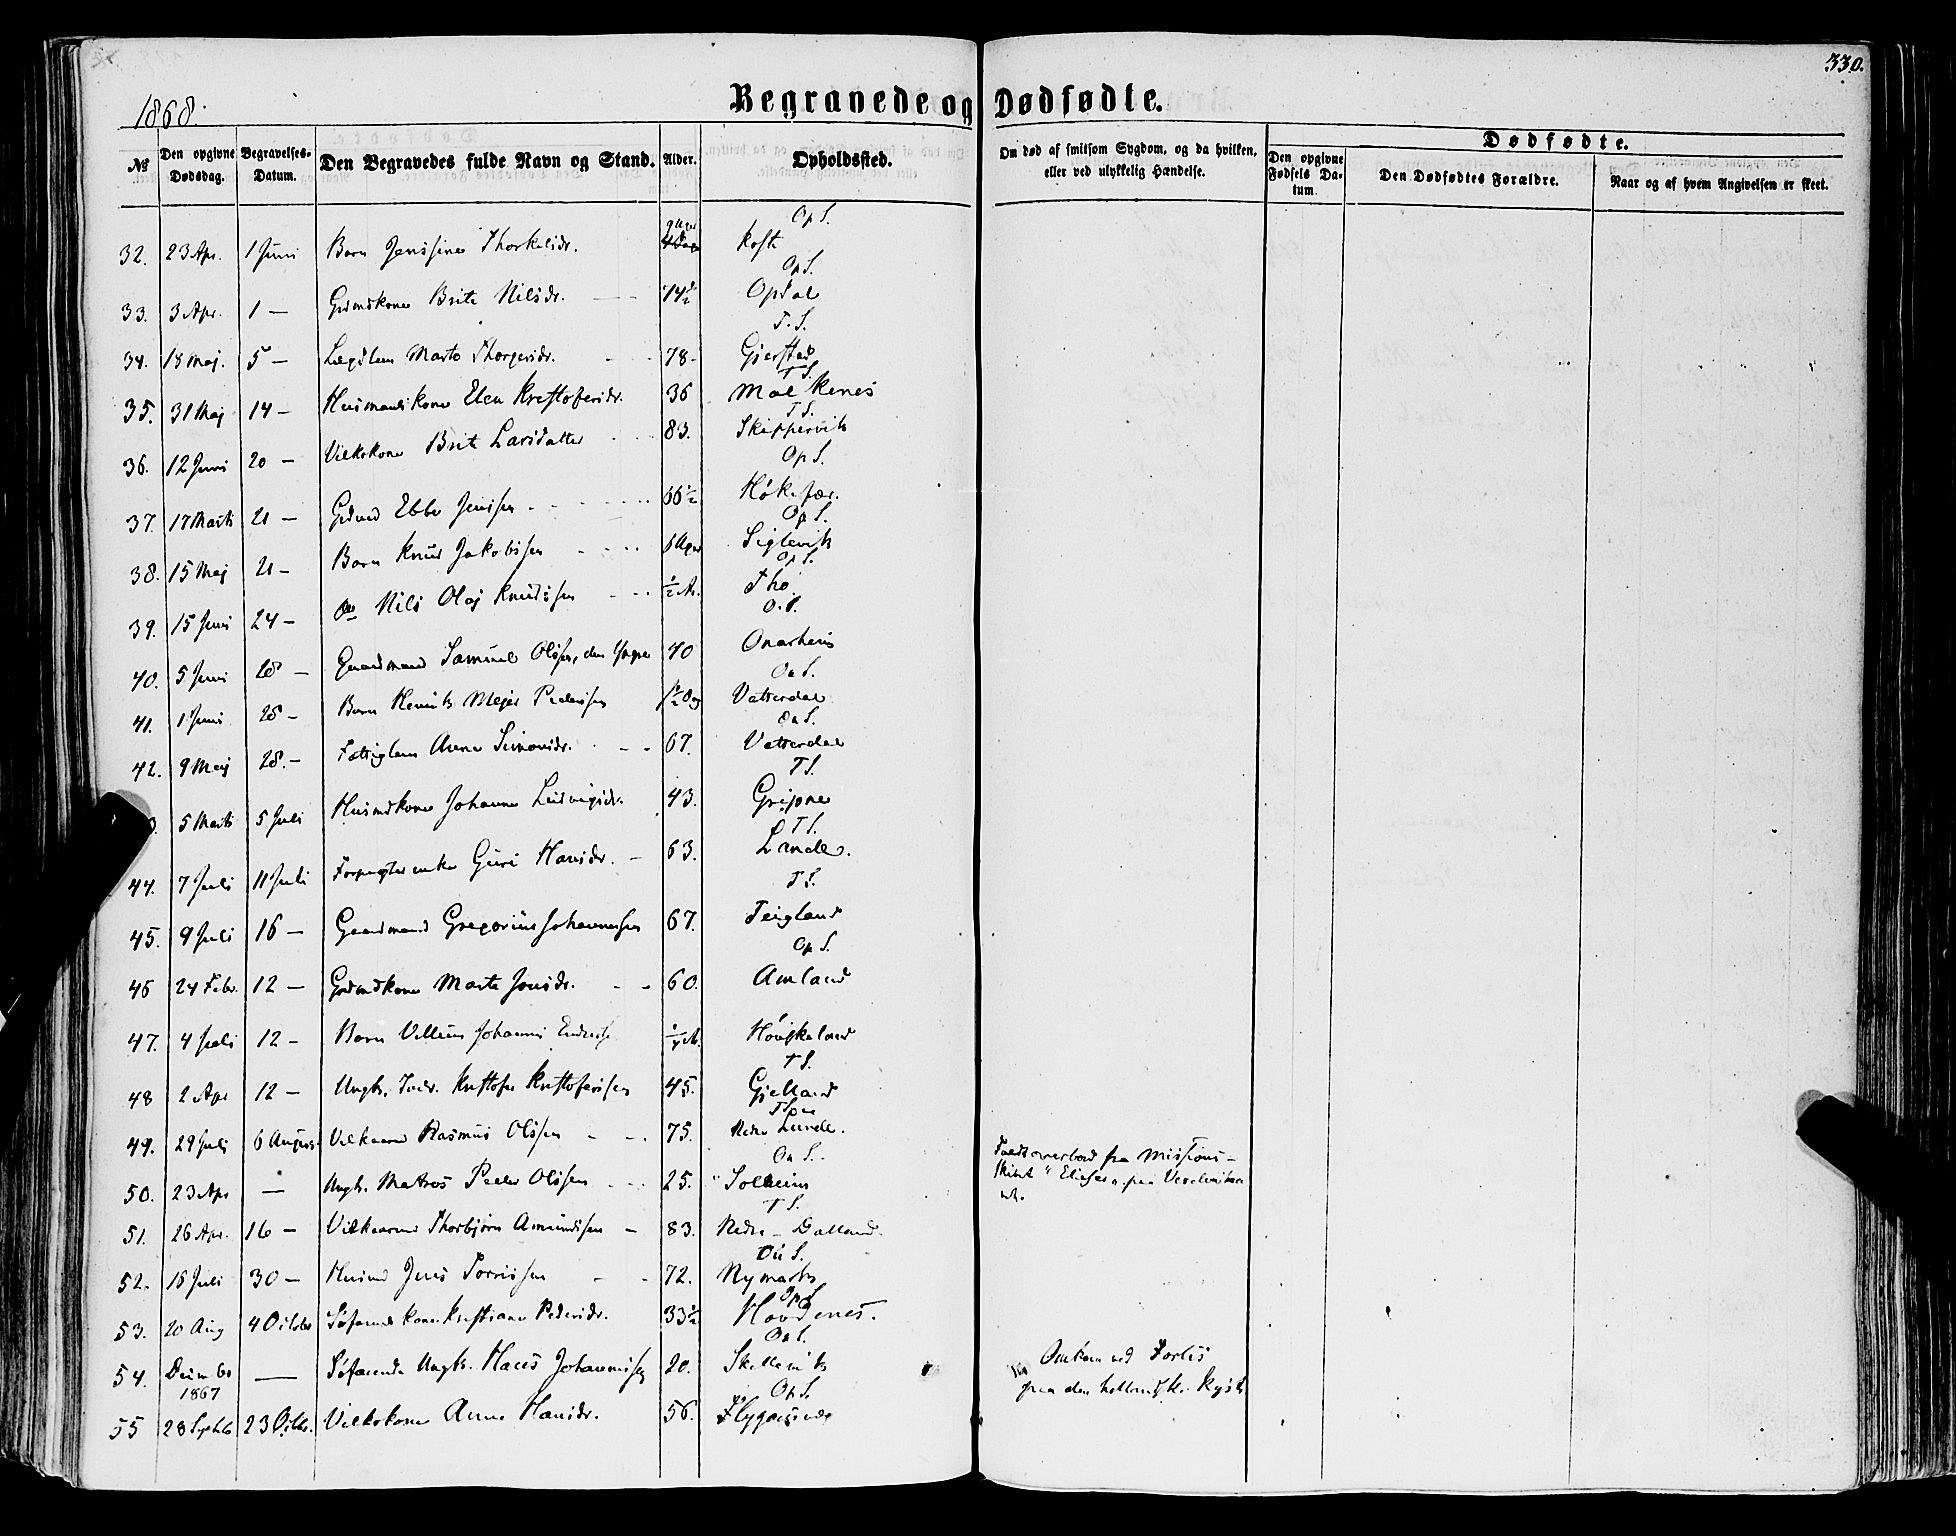 330.
1868.
Begravede og Dødfødte.
№ Den opgivne Dødsdag. Begravelses-Datum. Den Begravedes fulde Navn og Stand. Alder. Opholdssted. Om død af smitsom Sygdom, og da hvilken, eller ved ulykkelig Hændelse. Dødfødte.
Den opgivne Fødsels Datum. Den Dødfødtes Forældre. Naar og af hvem Angivelsen er skeet.
Op S.
32. 23 Apr. 1 Juni Barn Jensine Thorkelsdr. Koste
Op S.
33. 3 Apr. 1 — Grdmdkone Brite Nilsdr. 74½ Opdal
T. S.
34. 18 Maj. 5 — Lægdslem Marta Thorgersdr. 78 Gjerstad
T S.
35. 31 Maj 14 — Husmandskone Elen Kristofersdr. 36 Malkenes
T S.
36. 12 Juni 20 — Vilkskone Brite Larsdatter 83. Skippervik
Op S.
37. 17 Marts 21 — Grdmd Ebbe Jensen 66½
Op S.
38. 15 Maj 21 — Barn Knud Jakobsen Siglevik
Op S.
39. 15 Juni 24 — do Nils Olaj Knudsen ½ A. Thø
O. S.
40. 5 Juni 28 — Gaardmand Samuel Olsen, den Yngre 40 Onarheim
On S.
41. 1 Juni 28 — Barn Henrik Mejer Pedersen Vatterdal
On S.
42. 9 Maj 28. — Fattiglem Anna Simonsdr. 67. Vatterdal
T S.
5 Marts 5 Juli Husmdkone Johanne Ludvigsdr. 43. Gripne
T S.
44. 7 Juli 11 Juli Forpagterenke Guri Hansdr. — 63. Lande.
T S.
45. 9 Juli 16 — Gaardmand Gregorius Johannessen 67. Teigland
Op S.
46 24 Febr. 12 — Grdmdkone Marta Jonsdr. 60. Amland
47. 4 Juli 12 — Barn Villum Johannes Endresen ¼ A. Høviskeland
T S.
48 2 Apr 12 — Ungk. Inds. Kristofer Kristofersen 45. Gjelland
49. 29 Juli 6 August Vilkaarmd Rasmus Olsen 75. Nedre Lunde.
On S.
50. 23 Apr — Ungk. Matros Peder Olsen 25. Solheim Faldt overbord fra Missions-
skibet "Elieser" paa
T S.
51. 26 Apr. 16 — Vilkaarmd Thorbjørn Amundsen — 83. Nedre - Dalland.
On S.
52. 16 Juli 30 — Husmd Jens Torrissen 72. Nymark
Op S
53. 20 Aug 4 Octobr Søfarendskone Kristiane Pedersdr. 33½ Hovdenes.
On S.
54. Decembr 1867 — Søfarende Ungk. Hans Johannessen 20. Skellevik Omkom ved Forlis
paa den hollandske Kyst
Op S.
55 28 Septbr 23 Octbr. Vilkskone Anna Hansdr. 56. Flygansvær